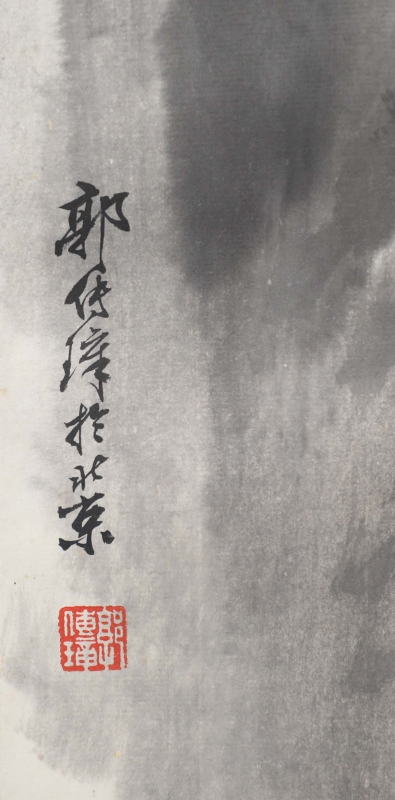 郭传璋於北京
郭傳璋